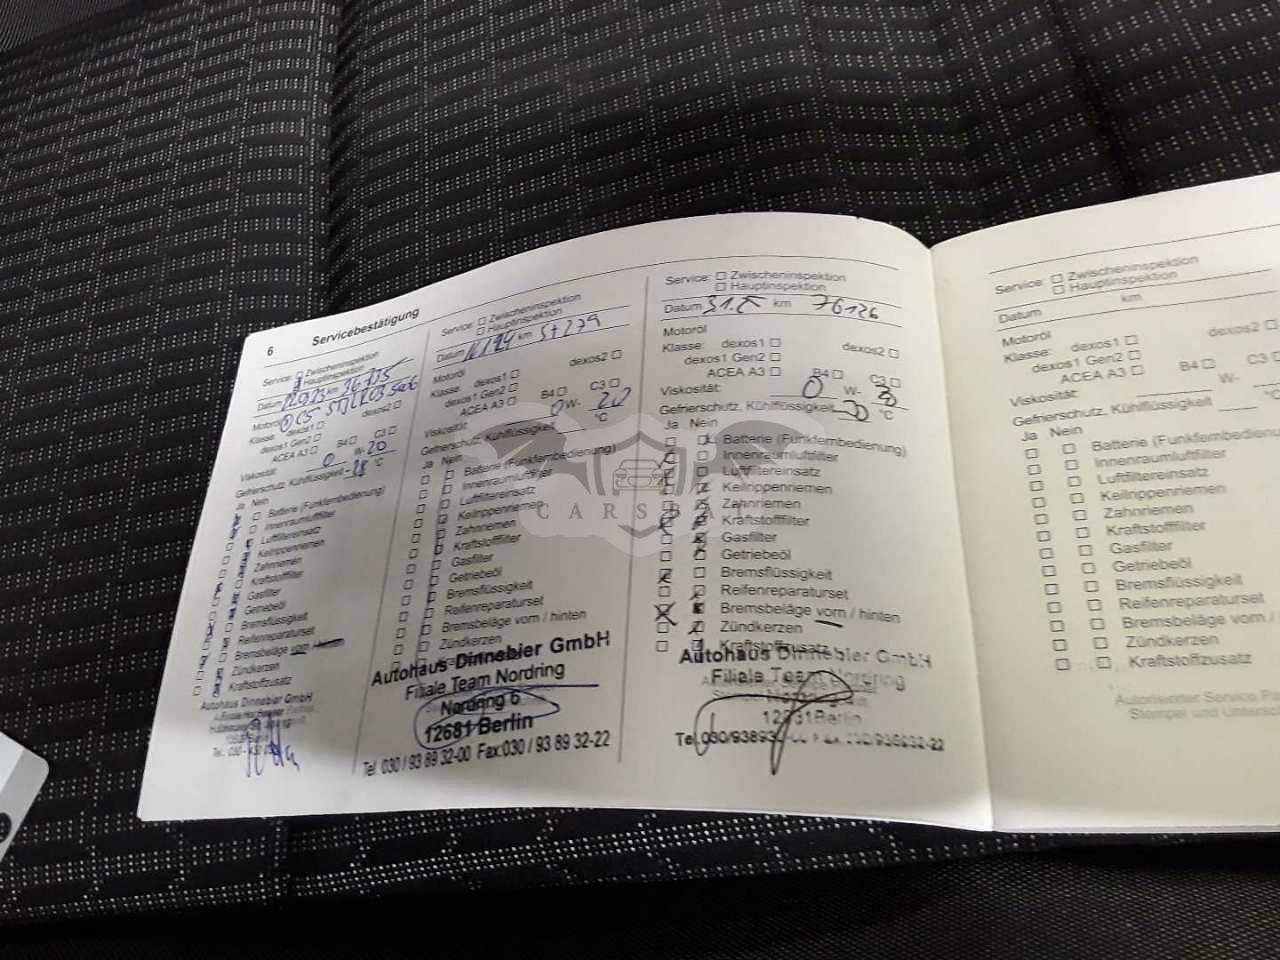 6 Servicebestätigung
Service: Zwischeninspektion
Hauptinspektion
Datum km
Motoröl
Klasse: dexos1 dexos2
dexos1 Gen2
ACEA A3 B4 C3
Viskosität: 0 W- 20
Gefrierschutz, Kühlflüssigkeit -28 °C
Ja Nein
Batterie (Funkfernbedienung)
Innenraumluftfilter
Luftfiltereinsatz
Keilrippenriemen
Zahnriemen
Kraftstofffilter
Gasfilter
Getriebeöl
Bremsflüssigkeit
Reifenreparaturset
Bremsbeläge vorn / hinten
Zündkerzen
Kraftstoffzusatz
Autohaus Dinnebier GmbH
Service: Zwischeninspektion
Hauptinspektion
Datum km
Motoröl
Klasse: dexos1 dexos2
dexos1 Gen2
ACEA A3 B4 C3
Viskosität: 0 W- 20
Gefrierschutz, Kühlflüssigkeit °C
Ja Nein
Batterie (Funkfernbedienung)
Innenraumluftfilter
Luftfiltereinsatz
Keilrippenriemen
Zahnriemen
Kraftstofffilter
Gasfilter
Getriebeöl
Bremsflüssigkeit
Reifenreparaturset
Bremsbeläge vorn / hinten
Zündkerzen
Autohaus Dinnebier GmbH
Filiale Team Nordring
Nordring 6
12681 Berlin
Tel. 030 / 93 89 32-00 Fax:030 / 93 89 32-22
Service: Zwischeninspektion
Hauptinspektion
Datum km 76126
Motoröl
Klasse: dexos1 dexos2
dexos1 Gen2
ACEA A3 B4 C3
Viskosität: 0 W-
Gefrierschutz, Kühlflüssigkeit °C
Ja Nein
Batterie (Funkfernbedienung)
Innenraumluftfilter
Luftfiltereinsatz
Keilrippenriemen
Zahnriemen
Kraftstofffilter
Gasfilter
Getriebeöl
Bremsflüssigkeit
Reifenreparaturset
Bremsbeläge vorn / hinten
Zündkerzen
Kraftstoffzusatz
Autohaus Dinnebier GmbH
Filiale Team Nordring
Berlin
Service: Zwischeninspektion
Hauptinspektion
Datum km
Motoröl
Klasse: dexos1 dexos2
dexos1 Gen2
ACEA A3 B4 C3
Viskosität: W-
Gefrierschutz, Kühlflüssigkeit °C
Ja Nein
Batterie (Funkfernbedienung)
Innenraumluftfilter
Luftfiltereinsatz
Keilrippenriemen
Zahnriemen
Kraftstofffilter
Gasfilter
Getriebeöl
Bremsflüssigkeit
Reifenreparaturset
Bremsbeläge vorn /
Zündkerzen
Kraftstoffzusatz
Autorisierter Service
Stempel und